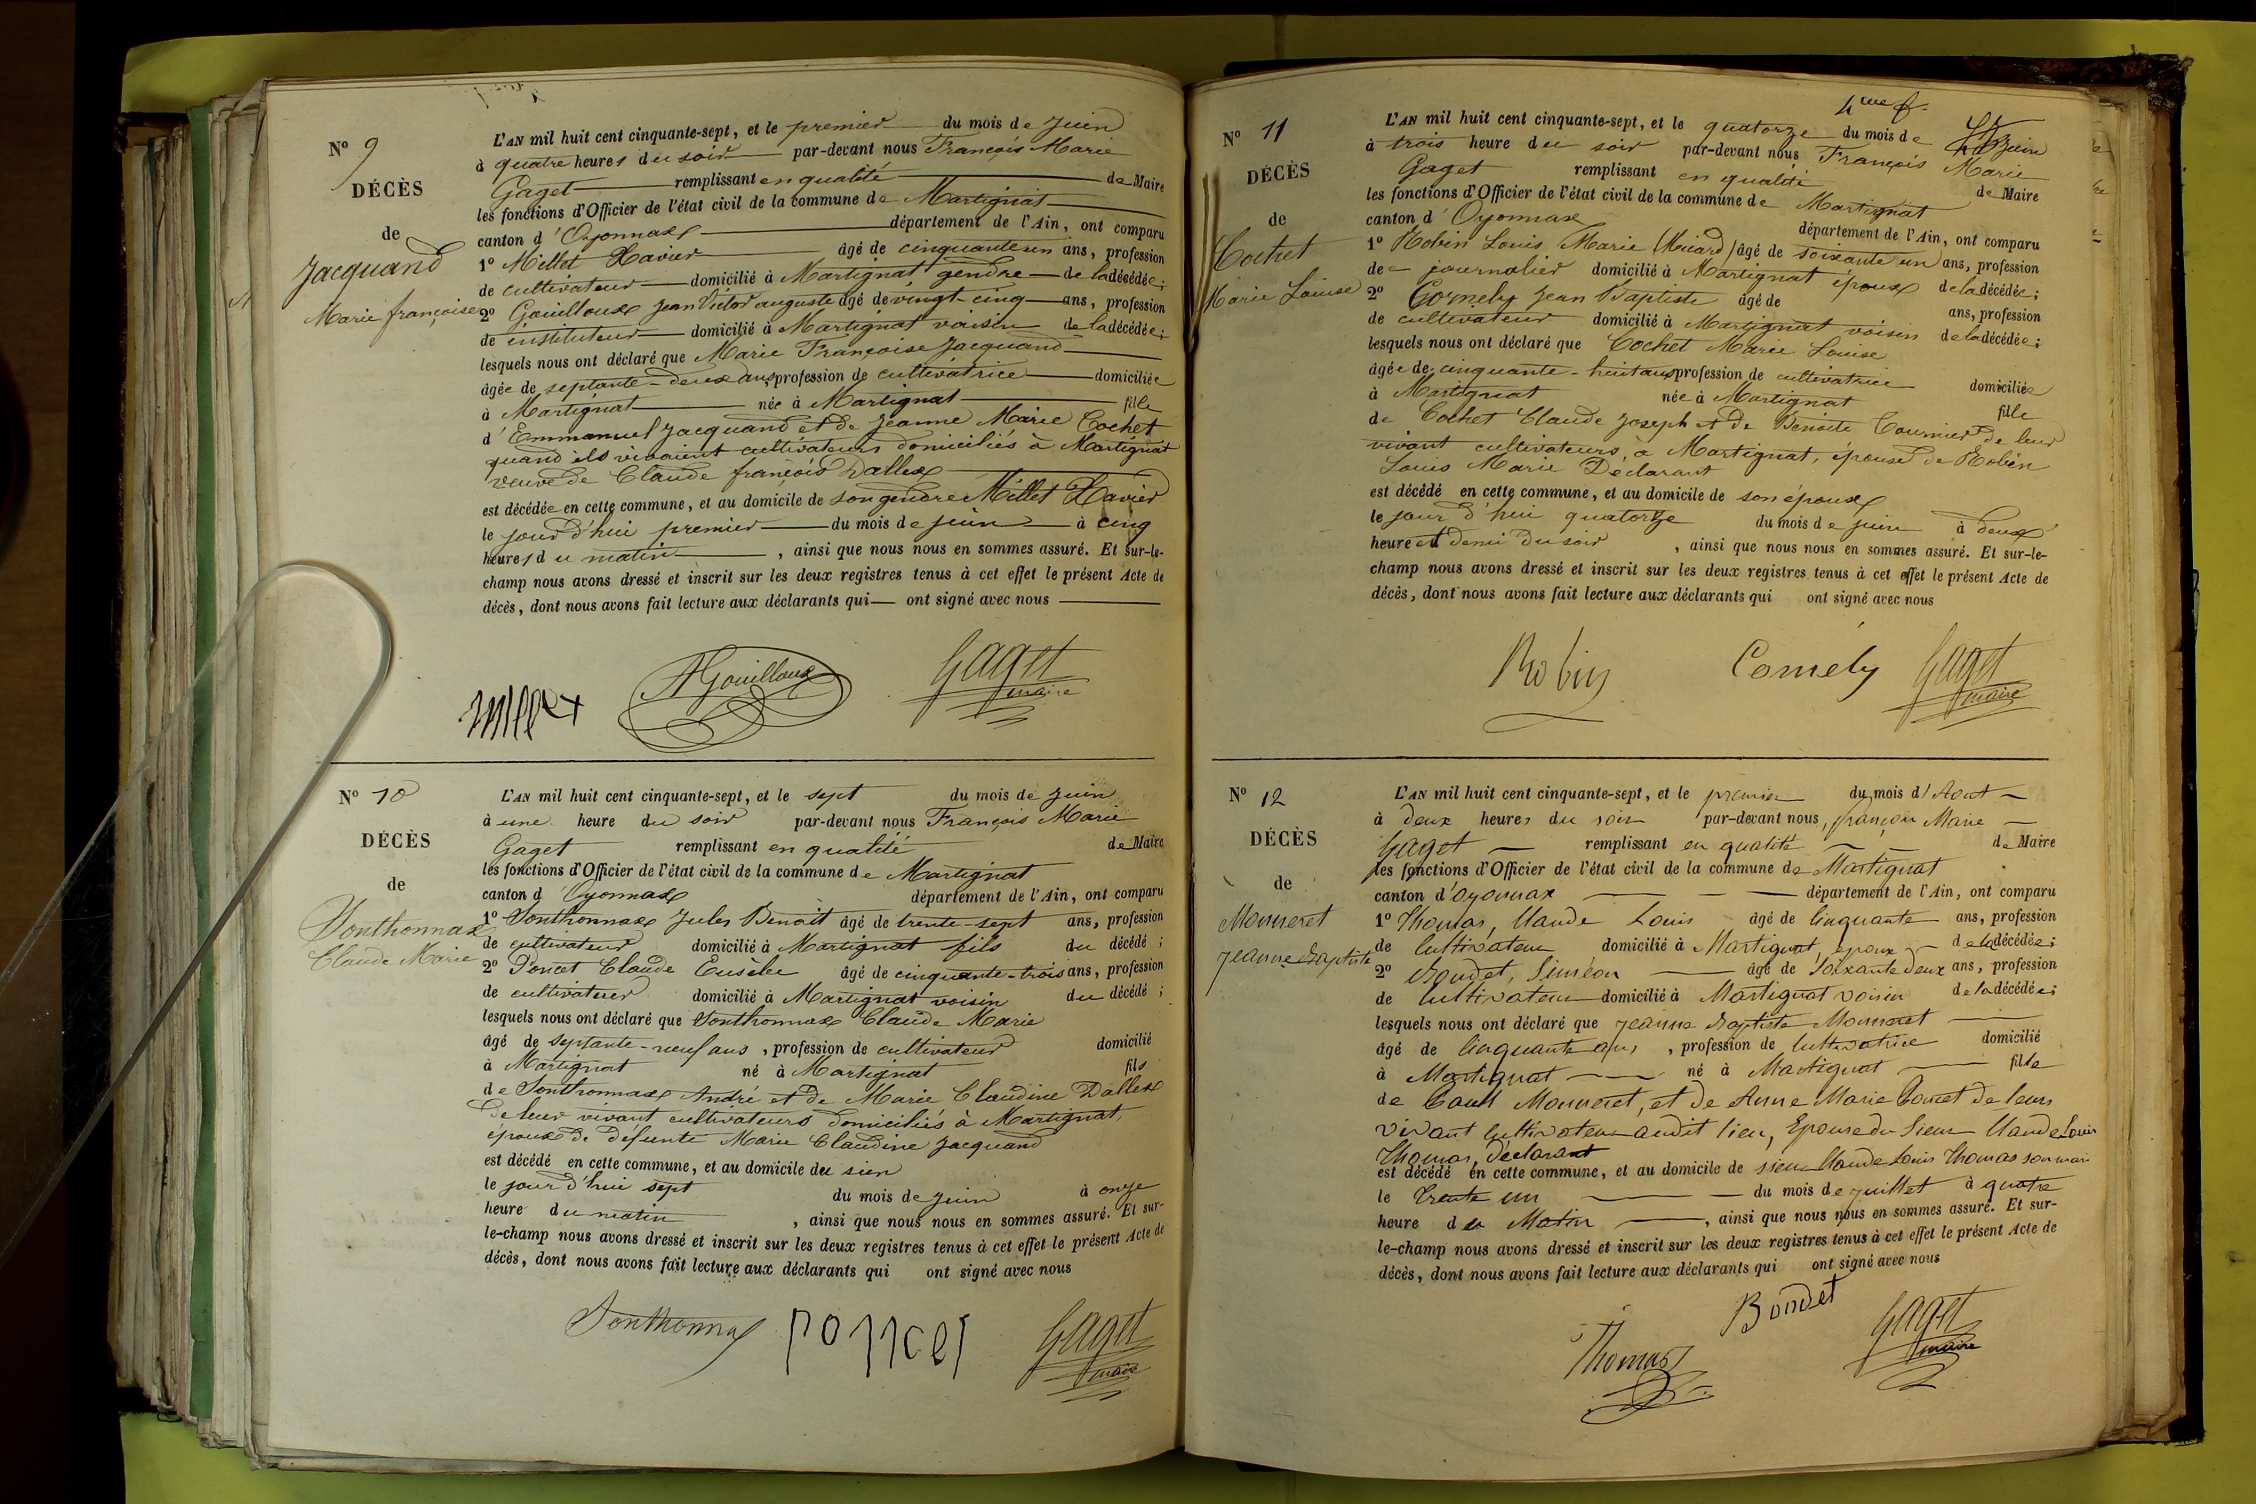 N° 9
DÉCÈS
de
Jacquand
Marie françoise
L'AN mil huit cent cinquante-sept, et le premier du mois de Juin
à quatre heures du soir par-devant nous François Marie
Gaget remplissant en qualité de Maire
les fonctions d'Officier de l'état civil de la commune de Martignat
canton d'Oyonnax département de l'Ain, ont comparu
1° Millet Xavier âgé de cinquante un ans, profession
de cultivateur domicilié à Martignat gendre de la décédée;
2° Gouilloux Jean Victor auguste âgé de vingt-cinq ans, profession
de instituteur domicilié à Martignat voisin de la décédée;
lesquels nous ont déclaré que Marie Françoise Jacquand
âgée de septante-deux ans, profession de cultivatrice domiciliée
à Martignat née à Martignat fille
d'Emmanuel Jacquand et de Jeanne Marie Cochet
quand ils vivaient cultivateurs domiciliés à Martignat
veuve de Claude françois Dallex
est décédée en cette commune, et au domicile de son gendre Millet Xavier
le jour d'hui premier du mois de juin à cinq
heures du matin, ainsi que nous nous en sommes assuré. Et sur-le-
champ nous avons dressé et inscrit sur les deux registres tenus à cet effet le présent Acte de
décès, dont nous avons fait lecture aux déclarants qui ont signé avec nous
millet AGouilloux Gaget
maire
N° 10
DÉCÈS
de
Sonthonnax
Claude Marie
L'AN mil huit cent cinquante-sept, et le sept du mois de Juin
à une heure du soir par-devant nous François Marie
Gaget remplissant en qualité de Maire
les fonctions d'Officier de l'état civil de la commune de Martignat
canton d'Oyonnax département de l'Ain, ont comparu
1° Sonthonnax Jules Benoit âgé de trente-sept ans, profession
de cultivateur domicilié à Martignat fils du décédé;
2° Poncet Claude Eusèbe âgé de cinquante-trois ans, profession
de cultivateur domicilié à Martignat voisin du décédé;
lesquels nous ont déclaré que Sonthonnax Claude Marie
âgé de septante-neuf ans, profession de cultivateur domicilié
à Martignat né à Martignat fils
de Sonthonnax André et de Marie Claudine Dallex
de leur vivant cultivateurs domiciliés à Martignat,
époux de défunte Marie Claudine Jacquand
est décédé en cette commune, et au domicile du sien
le jour d'hui sept du mois de juin à onze
heure du matin, ainsi que nous nous en sommes assuré. Et sur-
le-champ nous avons dressé et inscrit sur les deux registres tenus à cet effet le présent Acte de
décès, dont nous avons fait lecture aux déclarants qui ont signé avec nous
Sonthonnax poncet Gaget
maire
4me f.
N° 11
DÉCÈS
de
Cochet
Marie Louise
L'AN mil huit cent cinquante-sept, et le quatorze du mois de Juin
à trois heure du soir par-devant nous François Marie
Gaget remplissant en qualité de Maire
les fonctions d'Officier de l'état civil de la commune de Martignat
canton d'Oyonnax département de l'Ain, ont comparu
1° Robin Louis Marie âgé de soixante un ans, profession
de journalier domicilié à Martignat époux de la décédée;
2° Comely Jean Baptiste âgé de ans, profession
de cultivateur domicilié à Martignat voisin de la décédée;
lesquels nous ont déclaré que Cochet Marie Louise
âgée de cinquante-huit ans, profession de cultivatrice domiciliée
à Martignat née à Martignat fille
de Cochet Claude Joseph et de Benoite Tournier de leur
vivant cultivateurs, à Martignat, épouse de Robin
Louis Marie Déclarant
est décédé en cette commune, et au domicile de son époux
le jour d'hui quatorze du mois de juin à deux
heure et demi du soir, ainsi que nous nous en sommes assuré. Et sur-le-
champ nous avons dressé et inscrit sur les deux registres tenus à cet effet le présent Acte de
décès, dont nous avons fait lecture aux déclarants qui ont signé avec nous
Robin Comély Gaget
maire
N° 12
DÉCÈS
de
Monneret
Jeanne Baptiste
L'AN mil huit cent cinquante-sept, et le premier du mois d'Aout
à deux heures du soir par-devant nous, françois Marie
Gaget remplissant en qualité de Maire
les fonctions d'Officier de l'état civil de la commune de Martignat
canton d'oyonnax département de l'Ain, ont comparu
1° Thomas, Claude Louis âgé de Cinquante ans, profession
de Cultivateur domicilié à Martignat, époux de la décédée;
2° Bondet, Siméon âgé de Soixante deux ans, profession
de Cultivateur domicilié à Martignat voisin de la décédée;
lesquels nous ont déclaré que Jeanne Baptiste Monneret
âgé de Cinquante ans, profession de Cultivatrice domicilié
à Martignat né à Martignat fille
de Monneret, et de Anne Marie Poncet de leur
vivant Cultivateur audit lieu, Epouse du Sieur Claude Louis
Thomas, Déclarant
est décédé en cette commune, et au domicile de sieur Claude Louis Thomas son mari
le trente un du mois de juillet à quatre
heure du Matin, ainsi que nous nous en sommes assuré. Et sur-
le-champ nous avons dressé et inscrit sur les deux registres tenus à cet effet le présent Acte de
décès, dont nous avons fait lecture aux déclarants qui ont signé avec nous
Thomas Bondet Gaget
maire